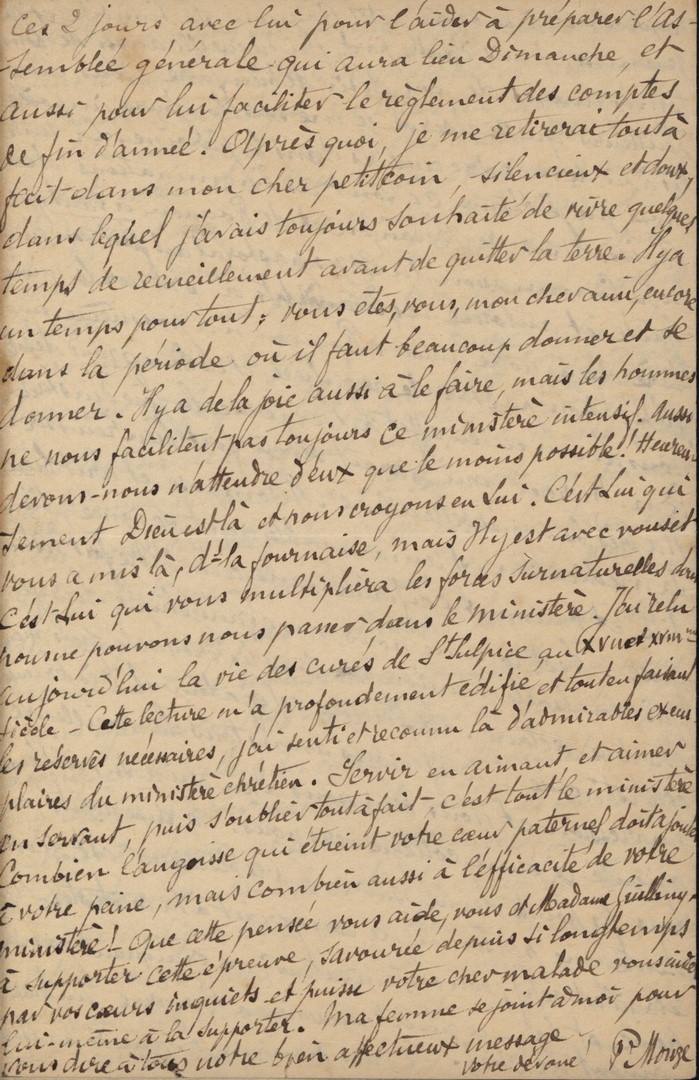 ces 2 jours avec lui pour l'aider à préparer l'As-
semblée générale qui aura lieu Dimanche, et
aussi pour lui faciliter le règlement des comptes
de fin d'année. Après quoi, je me retirerai tout à
fait dans mon cher petit coin, silencieux et doux,
dans lequel j'avais toujours souhaité de vivre quelques
temps de recueillement avant de quitter la terre. Il y a
un temps pour tout ; vous êtes, vous, mon cher ami, encore
dans la période où il faut beaucoup donner et se
donner. Il y a de la joie aussi à le faire, mais les hommes
ne nous facilitent pas toujours ce ministère intensif. Aussi
devons-nous n'attendre d'eux que le moins possible ! Heureu-
sement Dieu est là et nous croyons en Lui. C'est Lui qui
vous a mis là, ds la fournaise, mais Il y est avec vous et
c'est Lui qui vous multipliera les forces surnaturelles dont
nous ne pouvons nous passer dans le ministère. J'ai relu
aujourd'hui la vie des curés de St Sulpice au XVII et XVIIIme
siècle - Cette lecture m'a profondement édifié et tout en faisant
les réserves nécessaires, j'ai senti et reconnu là d'admirables exem
plaires du ministère chrétien. Servir en aimant et aimer
en servant, puis s'oublier tout à fait - c'est tout le ministère
Combien l'angoisse qui étreint votre cœur paternel doit ajouter
à votre peine, mais combien aussi à l'efficacité de votre
ministère ! Que cette pensée vous aide, vous et Madame
à supporter cette épreuve, savourée depuis si longtemps
par vos cœurs inquiets et puisse votre cher malade vous aider
lui-même à la supporter. Ma femme se joint à moi pour
vous dire à tous notre bien affectueux message
votre dévoué